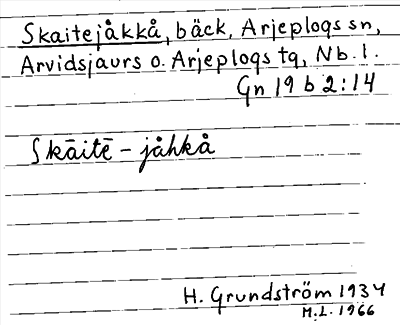 Skaitejåkkå, bäck, Arjeplogs sn,
Arvidsjaurs o. Arjeplogs tg, Nb. l.
Gn 19 b 2:14
Skāitē - jåhkå
H. Grundström 1934
M.L. 1966